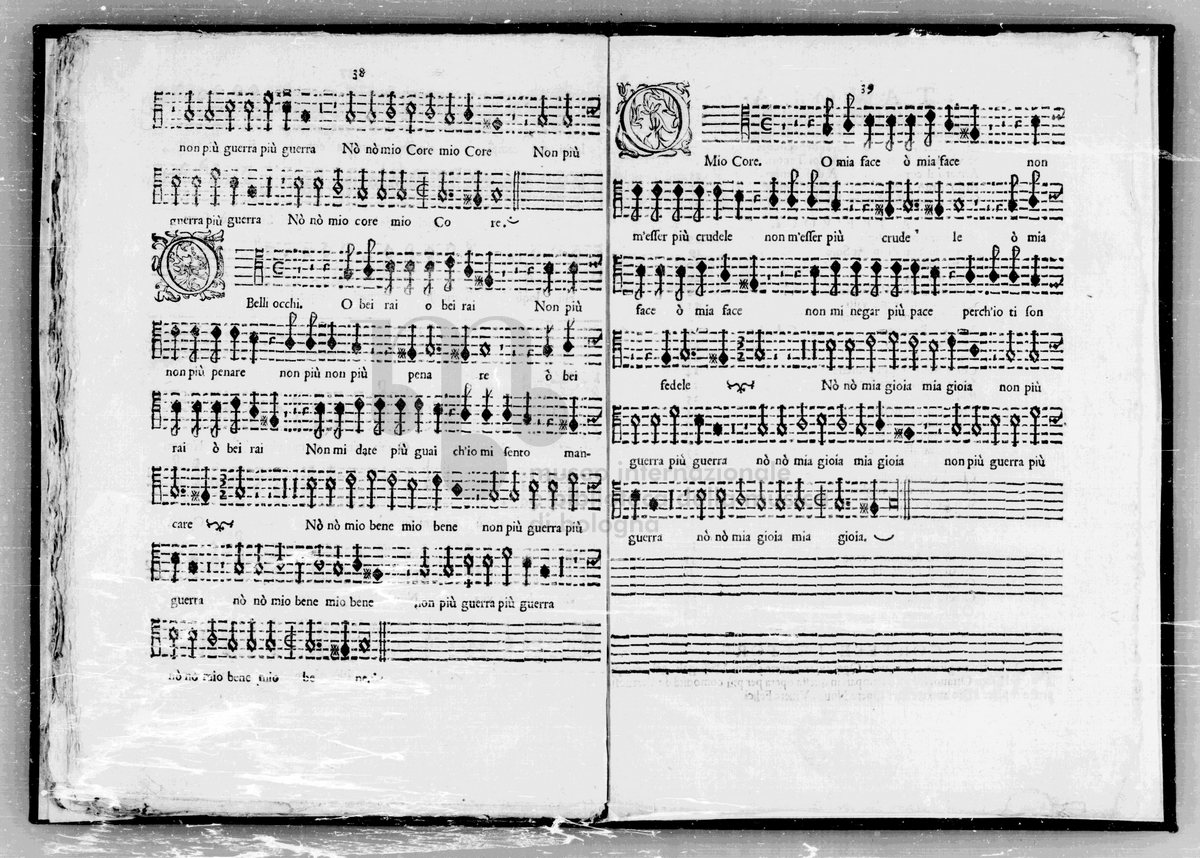 38
non più guerra più guerra Nò nò mio Core mio Core Non più
guerra più guerra Nò nò mio core mio Co re.
O
Belli occhi. O bei rai o bei rai Non più
non più penare non più non più pena re ò bei
rai ò bei rai Non mi date più guai ch'io mi sento man-
care Nò nò mio bene mio bene non più guerra più
guerra nò nò mio bene mio bene non più guerra più guerra
nò nò mio bene mio be ne.
39
O
Mio Core. O mia face ò mia face non
m'esser più crudele non m'esser più crude le ò mia
face ò mia face non mi negar più pace perch'io ti son
fedele Nò nò mia gioia mia gioia non più
guerra più guerra nò nò mia gioia mia gioia non più guerra più
guerra nò nò mia gioia mia gioia.
museo internazionale
di bologna